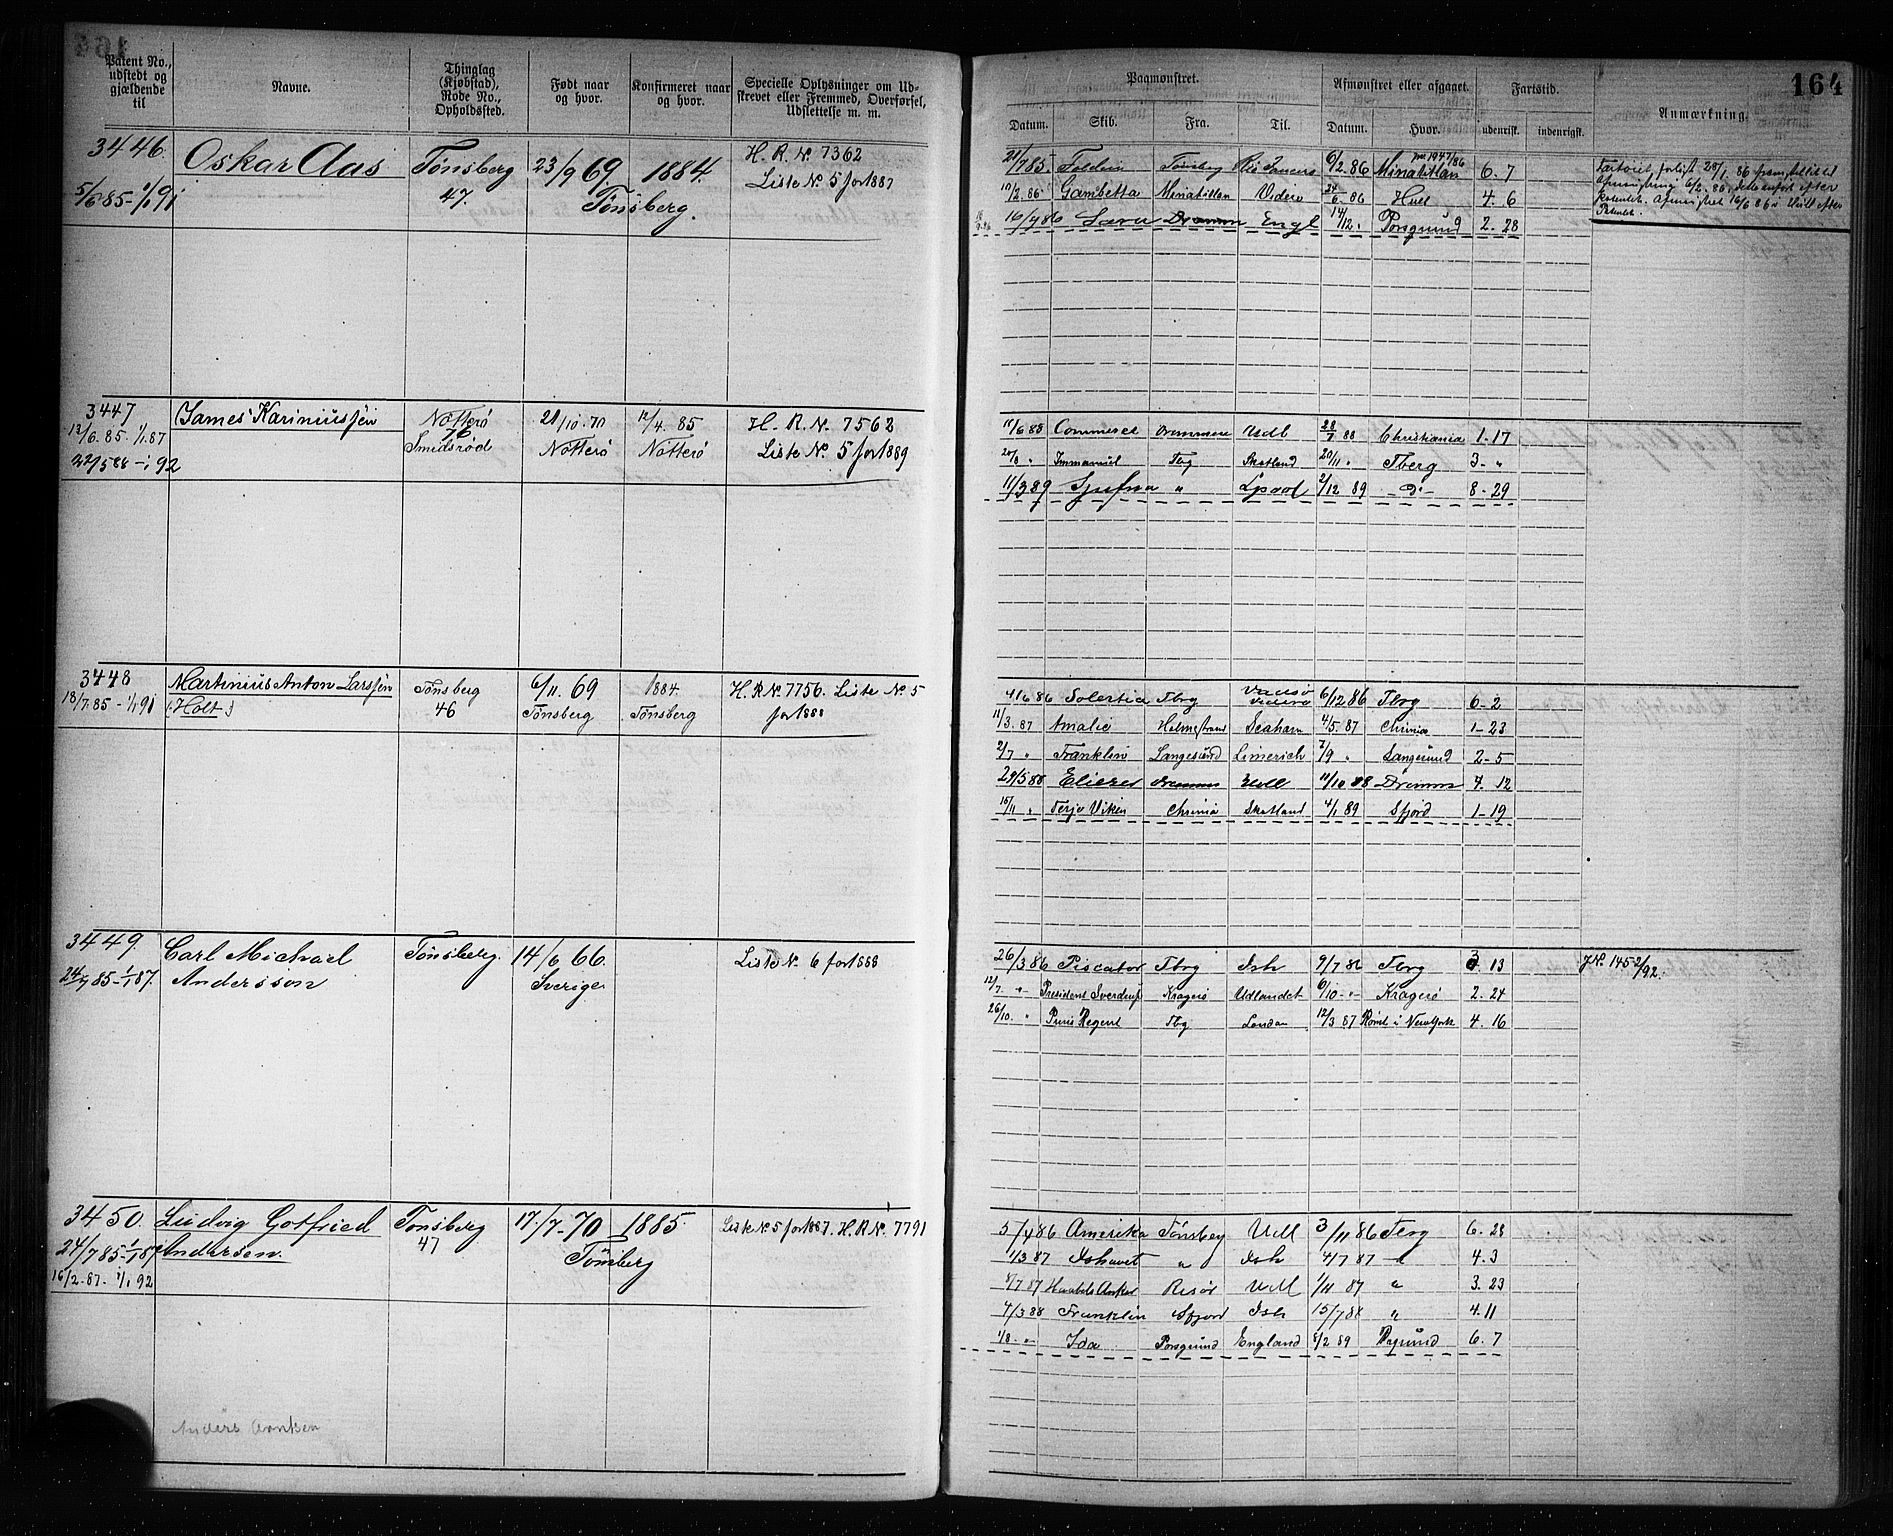 164
Patent No., udstedt og gjældende til
Navne.
Thinglag (Kjøbstad), Rode No., Opholdssted.
Født naar og hvor.
Konfirmeret naar og hvor.
Specielle Oplysninger om Udskrevet eller Fremmed, Overførsel, Udslettelse m. m.
Paamønstret.
Afmønstret eller afgaaet.
Fartstid.
Anmærkning.
Datum. Skib. Fra. Til. Datum. Hvor. udenrisk. indenrigsk.
3446. Oskar Aas Tønsberg 23/9 69 1884. H. R. N. 7362
5/6 85 - 1/1 91 47. Tønsberg. Liste N. 5 for 1887
21/7 85. Tønsberg 6/2.86 Minatitlan 6. 7
10/2.86 Gambetta Minatitlan Videre 24/6 86 Hull 4. 6
16/9 86 Engl 14/12. Porsgrund 2. 28
3447 James Kariniussen Nøtterø 21/10.70 12/4.85 H. R. N. 7562
12/6.85.-1/1.87 76 Smidsrød Nøtterø Nøtterø Liste N. 5 for 1889
22/5 88 - 1/1 92
11/6 88 Commerce Drammen Udl 28/7 88 Christiania 1-17
20/8 " Immanuel Tbg Skotland 20/11 " Tberg 3 - "
11/3 89 " Lpool 2/12 89 - Do - 8 - 29
3448 Martinius Anton Larssen Tønsberg 6/11. 69 1884. H. R N. 7756. Liste N. 5
18/7.85 - 1/1 91 (: Holt :) 46 Tønsberg Tønsberg for 1888
4/6 86 Solertia Tbrg videre 6/12 86 Tbrg 6 - 2
11/3.87 Amalie Holmestrand Seaham 4/5.87 Chrinia 1-23
2/7 " Franklin Langesund Limerich 7/9 " Langesund 2-5
29/5 88 Eliezer Drammen Udl 11/10 88 Dramm 4. 12
15/11 " Terje Viken Chrinia Skotland 4/1 89 Sfjord 1-19
3449. Carl Michael Tønsberg. 14/6 66. Liste N. 6 for 1888
24/7 85 - 1/1 87. Andersson Sverige
26/3 86 Piscator Tbrg Ish 9/7 86 Tbrg 3. 13 J N. 145 2/92.
12/7. " Presidènt Sverdrup Kragerø Udlandet 6/10 - " - Kragerø 2. 24
26/10. " Prins Regent Tbg London 12/3 87 Rømt i NewYork 4. 16
3450. Ludvig Gotfried Tønsberg 17/7-70 1885. Liste N. 5 for 1887. H. R N. 7791
24/7 85 - 1/1 87 Andersen. 47 Tønsberg
16/2.87 - 1/1 92
5/4 86 Amerika Tønsberg Udl 3/11 86 Tbrg 6. 28
1/3 87 Ishavet " Ish 4/7 87 " 4. 3
8/7 87 Haabets Anker Risør Udl 1/11 87 " 3. 23
4/3 88 Franklin Sfjord Ish 15/7 88 " 4. 11
1/8 - " - Ida Porsgrund England 8/2 89 6. 7
Anders